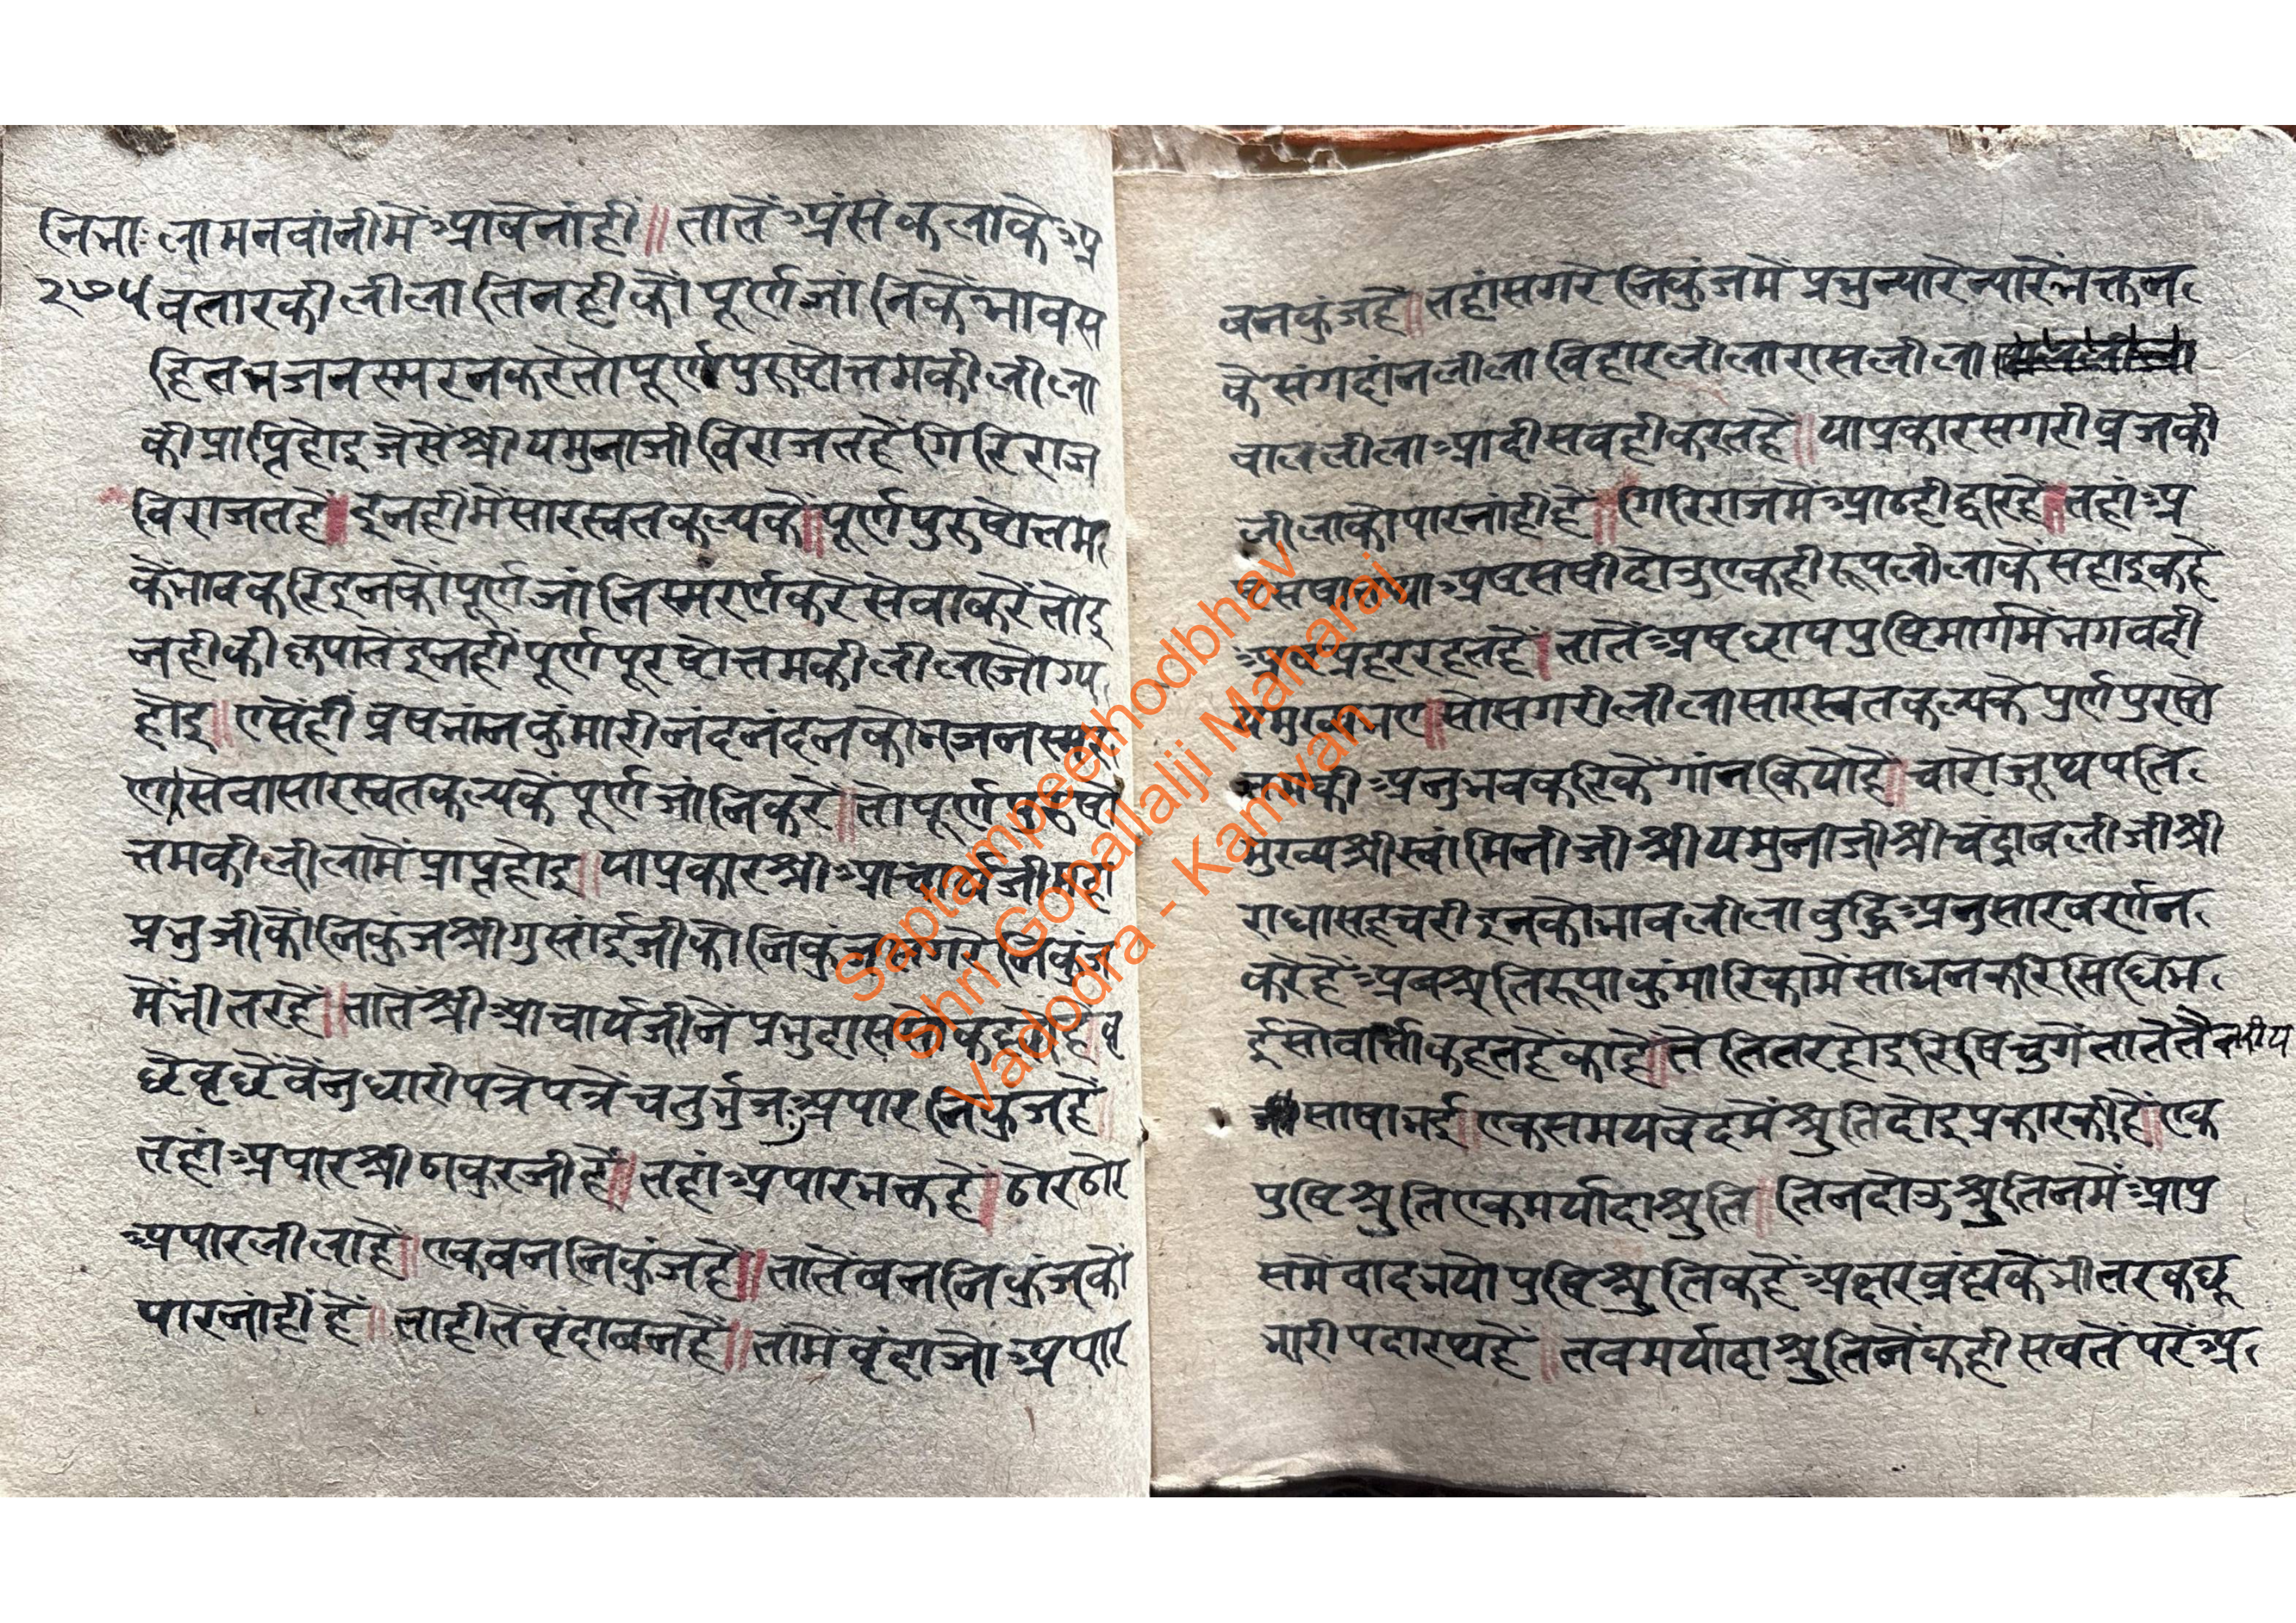 नि.भा. लामनवांनीमेंआबेनांही॥तातेंअंसकलाकेअ
२७५ वतारकी लीलातिनहीकों पूर्णजांनिकें भावस
हितभजनस्मरनकरेतोपूर्णपुरुषोत्तमकी लीला
की प्राप्तिहोइ जेसेंश्रीयमुनाजी विराजतहें गिरिराज
विराजतहें॥इनहीमेंसारस्वतकल्पकें॥पूर्णपुरुषोत्तम
कें भावकरि इनकोंपूर्णजांनिस्मरर्णकरेसेवाकरेंतोइ
नहीकी कृपातेंइनहीं पूर्णपूरषोत्तमकी लीलाजोग्य
होइ॥एसेंहीं व्रषभांनकुंमारीनंदनंदनकोभजनस्मर
णसेवासारस्वतकल्पकें पूर्णजांनिकरें॥तोपूर्णपुरुषो
त्तमकी लीलामें प्राप्तहोइ॥याप्रकारश्रीआचार्यजीमहा
प्रभुजीकों निकुंजश्रीगुसांईजीकों निकुंजसगरे निकुंज
मेंभीतरहें॥तातेंश्रीआचार्यजीनें प्रभुदाससोंकहेंहें॥वृ
छेवृछेंवेंनुधारीपत्रेपत्रेंचतुर्भुजःअपार निकुंजहें॥
तहांअपारश्रीठाकुरजीहें॥तहांअपारभक्तहें॥ठोरठोर
अपारलीलाहें॥एकवन निकुंजहें॥तातेंबननिकुंजकों
पारनांहींहें॥ताहीतेंवृंदाबनहें॥तामेंवृंदाजोअपार
बनकुंजहें॥तहांसगरे निकुंजमें प्रभुन्यारेन्यारेंभक्तन
केसंगदांनलीला विहारलीलारासलीला
बाललीलाआदीसबहीकरतहें॥याप्रकारसगरीव्रजकी
लीलाकोपारनांहींहें॥गिरिराजमेंआठहीद्वारहें॥तहांअ
ष्टसखातथाअष्टसखीदोनुएकहीरूपलीलाकेंसहाइकहें
अष्टप्रहररहतहें॥तातेंअष्टछापपुष्टिमार्गमेंभगवदी
यमुख्यभए॥सोसगरीलीलासारस्वतकल्पके पुर्णपुरषो
त्तमकीअनुभवकरिकेंगांनकियोहें॥चारोजूथपति
मुख्यश्रीस्वांमिनीजीश्रीयमुनाजीश्रीचंद्रावलीजीश्री
राधासहचरीइनकोभावलीलाबुद्धिअनुसारवर्णन
करेहेंअबश्रुतिरूपाकुंमारिकामेंसाधनकरिसिधिभ
ईसोवार्त्ताकहतहेंकाहे॥तेतितरहोइरिषिचुगेंतातेतैत्तरीय
साषाभई॥एकसमयवेदमेंश्रुतिदोइप्रकारकीहें॥एक
पुष्टिश्रुतिएकमर्यादाश्रुति॥तिनदोउश्रुतिनमेंआपु
समेंवादभयोपुष्टिश्रुतिकहेंअक्षरब्रंह्मकेंभीतरकछू
भारीपदारथहें॥तबमर्यादाश्रुतिनेंकहीसबतेंपरेंअ
Saptampeethodbhav
Shri Gopallalji Maharaj
Vadodra - Kamvan